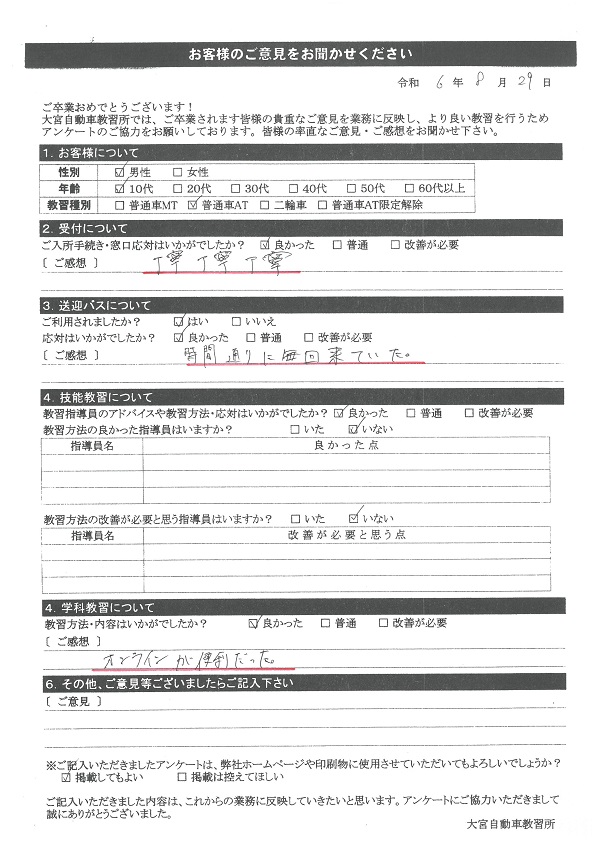 お客様のご意見をお聞かせください
令和 6 年 8 月 29 日
ご卒業おめでとうございます！
大宮自動車教習所では、ご卒業されます皆様の貴重なご意見を業務に反映し、より良い教習を行うため
アンケートのご協力をお願いしております。皆様の率直なご意見・ご感想をお聞かせ下さい。
1. お客様について
性別 ☑男性 □女性
年齢 ☑10代 □20代 □30代 □40代 □50代 □60代以上
教習種別 □普通車MT ☑普通車AT □二輪車 □普通車AT限定解除
2. 受付について
ご入所手続き・窓口応対はいかがでしたか？ ☑良かった □普通 □改善が必要
〔 ご感想 〕 丁寧 丁寧 丁寧
3. 送迎バスについて
ご利用されましたか？ ☑はい □いいえ
応対はいかがでしたか？ ☑良かった □普通 □改善が必要
〔 ご感想 〕 時間通りに毎回来ていた。
4. 技能教習について
教習指導員のアドバイスや教習方法・応対はいかがでしたか？ ☑良かった □普通 □改善が必要
教習方法の良かった指導員はいますか？ □いた ☑いない
指導員名 良かった点
教習方法の改善が必要と思う指導員はいますか？ □いた ☑いない
指導員名 改善が必要と思う点
4. 学科教習について
教習方法・内容はいかがでしたか？ ☑良かった □普通 □改善が必要
〔 ご感想 〕
オンラインが便利だった。
6. その他、ご意見等ございましたらご記入下さい
〔 ご意見 〕
※ご記入いただきましたアンケートは、弊社ホームページや印刷物に使用させていただいてもよろしいでしょうか？
☑掲載してもよい □掲載は控えてほしい
ご記入いただきました内容は、これからの業務に反映していきたいと思います。アンケートにご協力いただきまして
誠にありがとうございました。
大宮自動車教習所